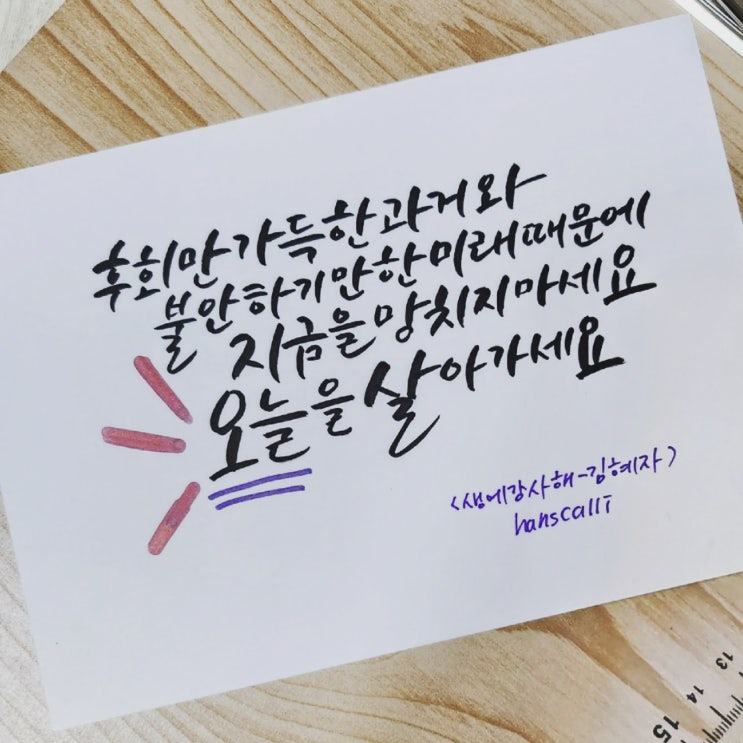 후회만 가득한 과거와
불안하기만 한 미래 때문에
지금을 망치지 마세요
오늘을 살아가세요
<생에감사해-김혜자>
hanscalli
13
14
15